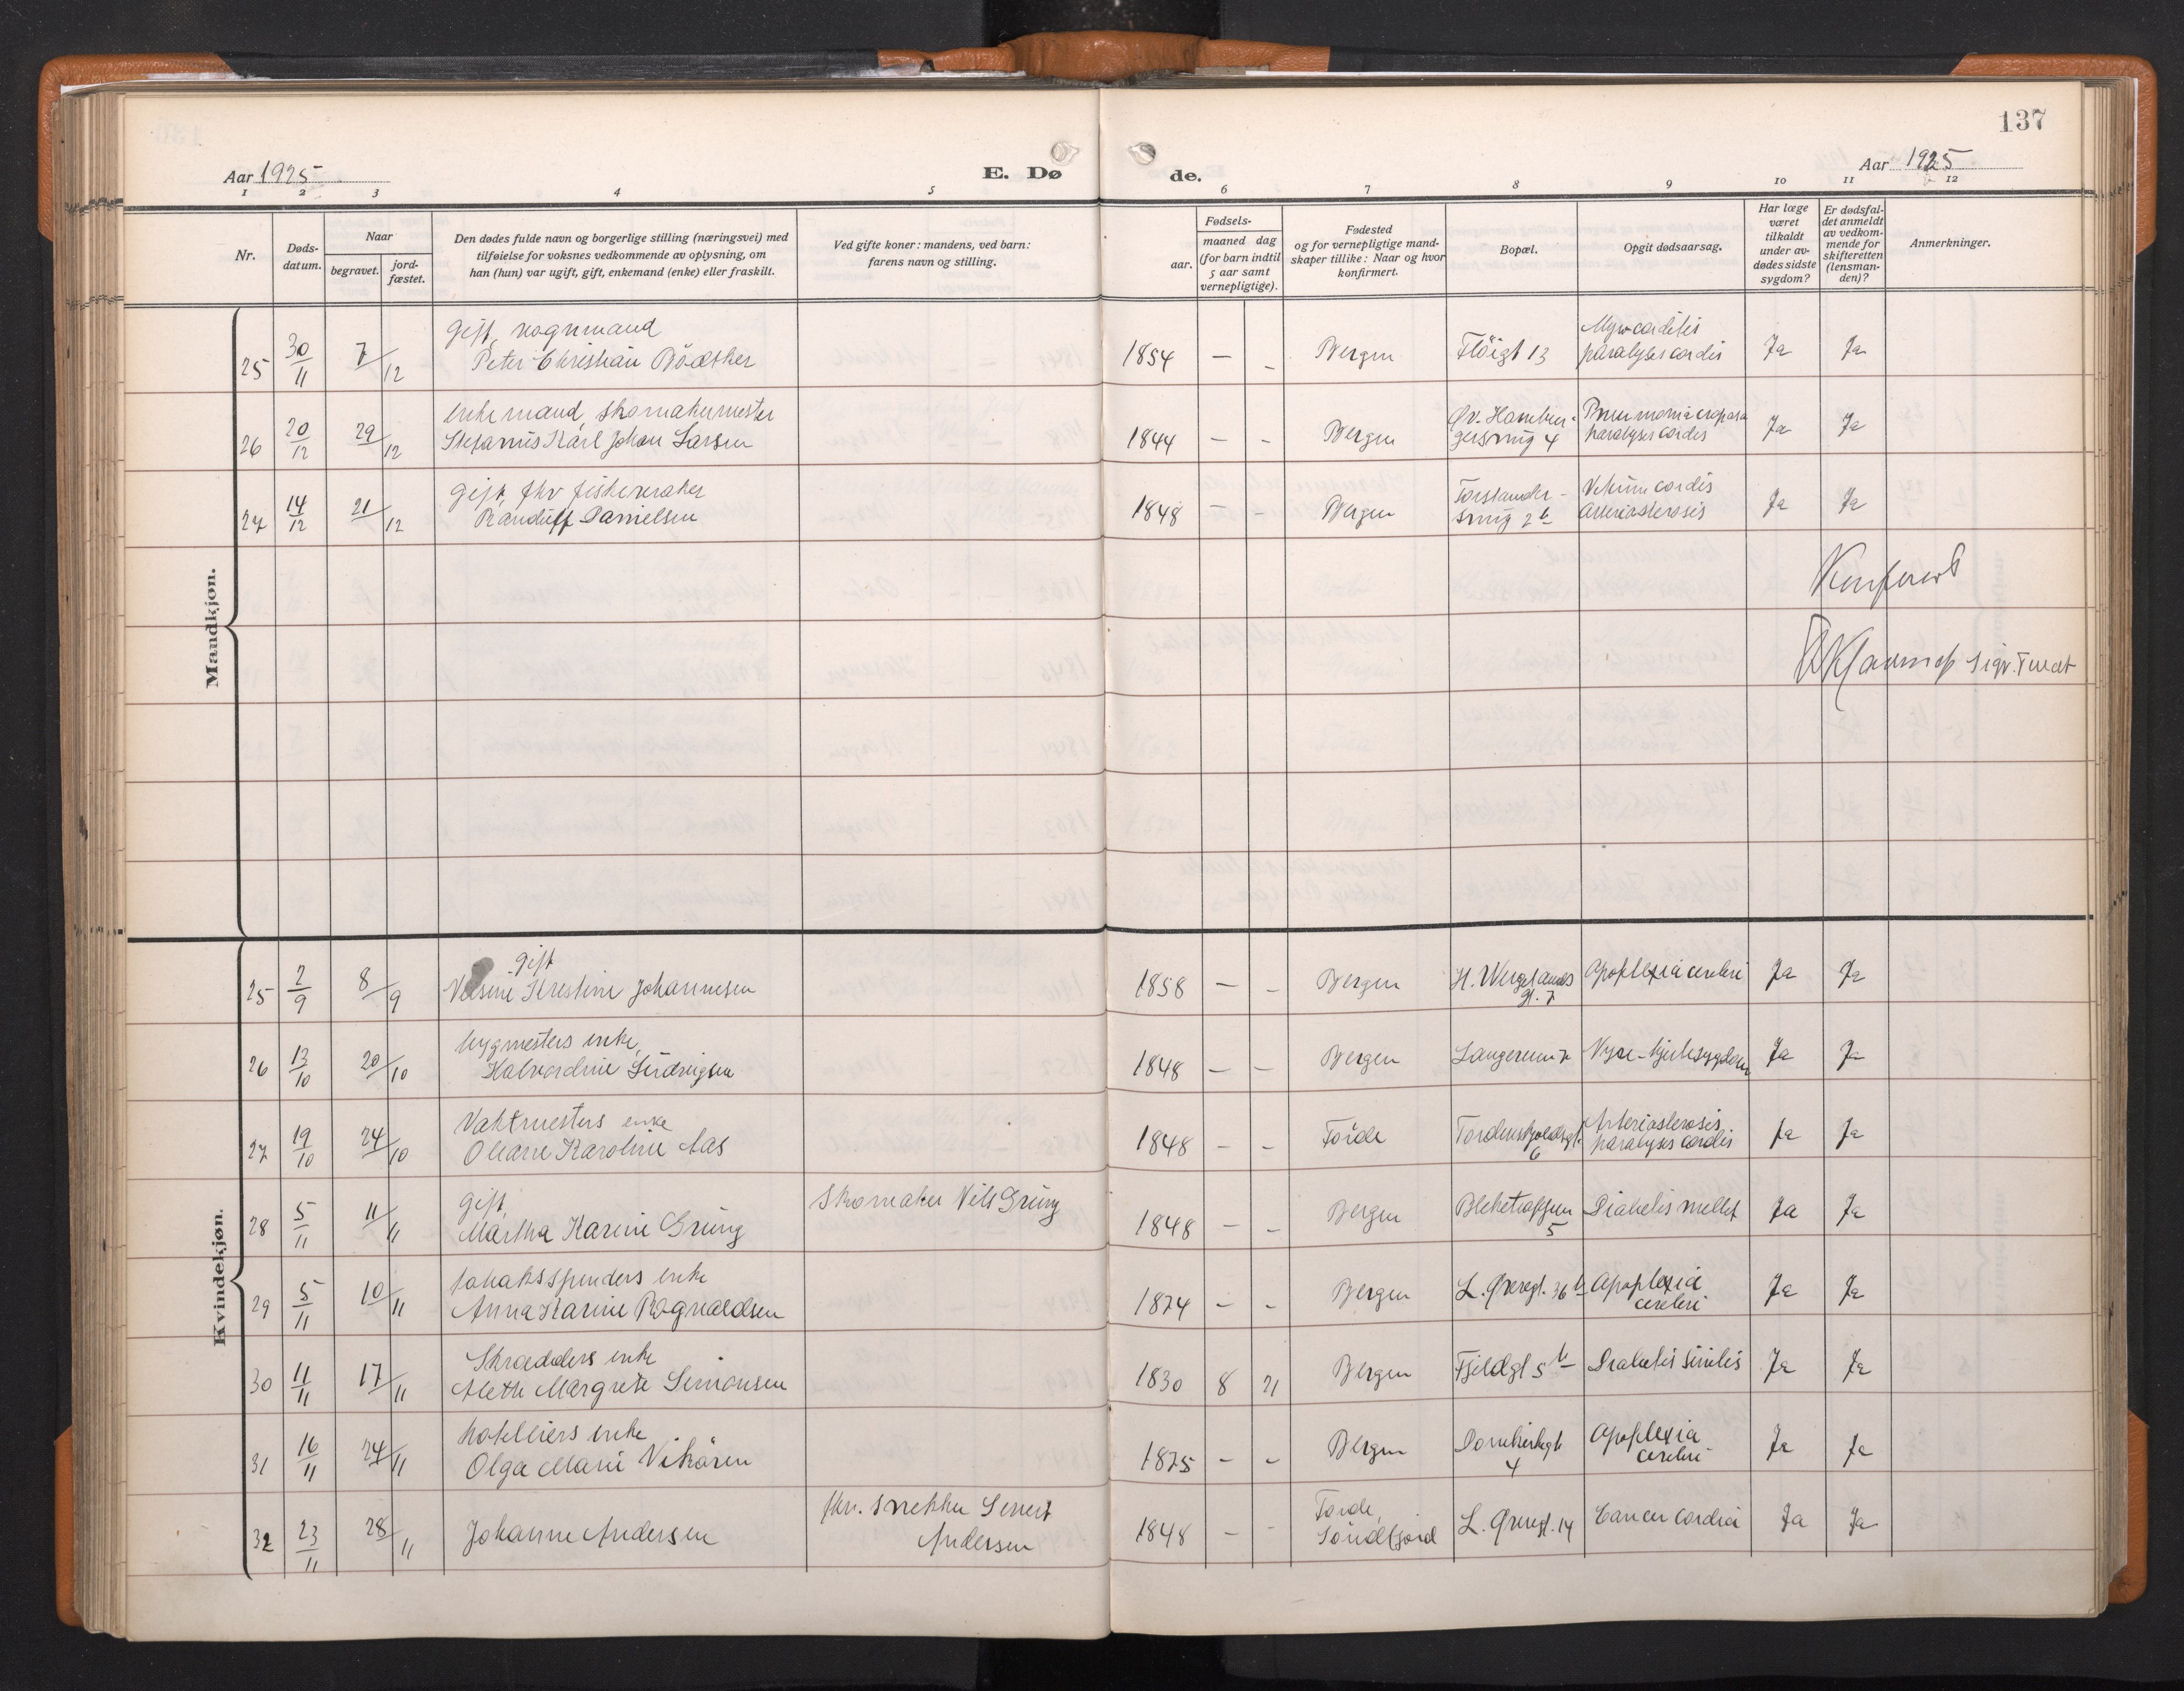 137
Aar 1925
E. Dø
de.
Aar 1925
1 2 3 4 5 6 7 8 9 10 11 12
Nr.
Døds-
datum.
Naar
begravet.
jord-
fæstet.
Den dødes fulde navn og borgerlige stilling (næringsvei) med
tilføielse for voksnes vedkommende av oplysning, om
han (hun) var ugift, gift, enkemand (enke) eller fraskilt.
Ved gifte koner: mandens, ved barn:
farens navn og stilling.
Fødsels-
aar.
maaned dag
(for barn indtil
5 aar samt
vernepligtige).
Fødested
og for vernepligtige mand-
skaper tillike: Naar og hvor
konfirmert.
Bopæl.
Opgit dødsaarsag.
Har læge
været
tilkaldt
under av-
dødes sidste
sygdom?
Er dødsfal-
det anmeldt
av vedkom-
mende for
skifteretten
(lensman-
den)?
Anmerkninger.
Mandkjøn.
25 30/11 7/12 Gift, vognmand
Peter Christian Bödtker
1854 — - Bergen Flöigt 13 Myocarditis
paralysis cordis Ja Ja
26 20/12 29/12 enkemand, skomakermester
Stefanus Karl Johan Larsen
1844 - - Bergen Øv. Hambur-
gersmug 4 Pneumonia
paralysis cordis Ja Ja
24 14/12 21/12 Gift, fhv fiskevraker
Randulff Danielsen
1848 - - Bergen Forstander-
smug 2b Vitium cordis
Arteriosclerosis Ja Ja
Konferert
Kvindekjøn.
25 2/9 8/9 gift
Kristine Johannesen
1858 — - Bergen H. Wergelands
gt. 7 Apoplexia cerebri Ja Ja
26 13/10 20/10 bygmesters enke,
Halvordine Ludvigsen
1848 — - Bergen Nyre-hjertesygdom Ja Ja
27 19/10 24/10 Vaktmesters enke
Oleane Karoline Aas
1848 - - Förde Tordenskjoldsgt.
6 Arteriosclerosis
paralysis cordis Ja Ja
28 5/11 11/11 Gift,
Martha Karine Grung
Skomaker Nils Grung
1848 - - Bergen
5 Diabetis mellit Ja Ja
29 5/11 10/11 tobaksspinders enke
Anna Karine Rognaldsen
1874 - - Bergen L. Øvregt. 36b Apoplexia
cerebri Ja Ja
30 11/11 17/11 Skrædders enke
Alethe Margrete Simonsen
1830 8 21 Bergen Fjeldgt 5b Ja Ja
31 16/11 24/11 hotelliers enke
Olga Marie Vikören
1875 - - Bergen Domkirkegt
4 Apoplexia
cerebri Ja Ja
32 23/11 28/11 Johanne Andersen
fhv. snekker Sivert
Andersen
1848 - - Förde,
Söndfjord L. Øvregt. 14 Cancer Ja Ja